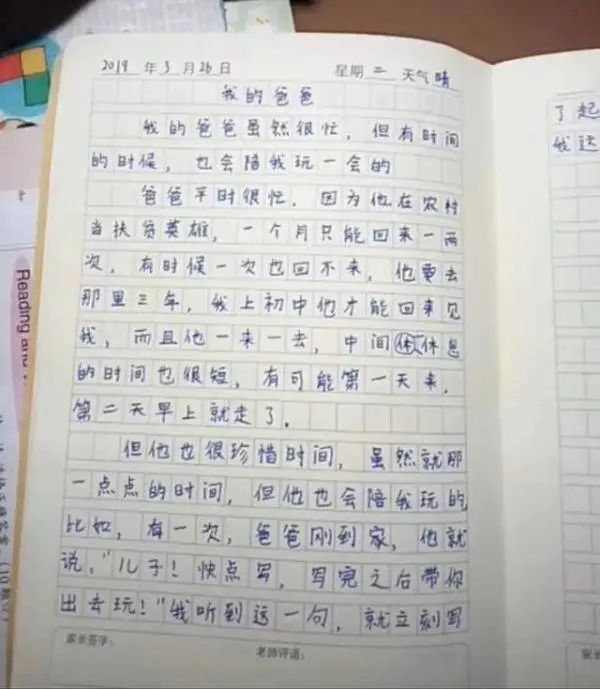 2019 年 3 月 26 日 星期 二 天气 晴
我的爸爸
我的爸爸虽然很忙，但有时间
的时候，也会陪我玩一会的
爸爸平时很忙，因为他在农村
当扶贫英雄，一个月只能回来一两
次，有时候一次也回不来，他要去
那里三年，我上初中他才能回来见
我，而且他一来一去，中间休息
的时间也很短，有可能第一天来，
第二天早上就走了．
但他也很珍惜时间，虽然就那
一点点的时间，但他也会陪我玩的
比如，有一次，爸爸刚到家，他就
说，"儿子！快点写，写完之后带你
出去玩！"我听到这一句，就立刻写
家长签字：
老师评语：
了起
我这
Reading and